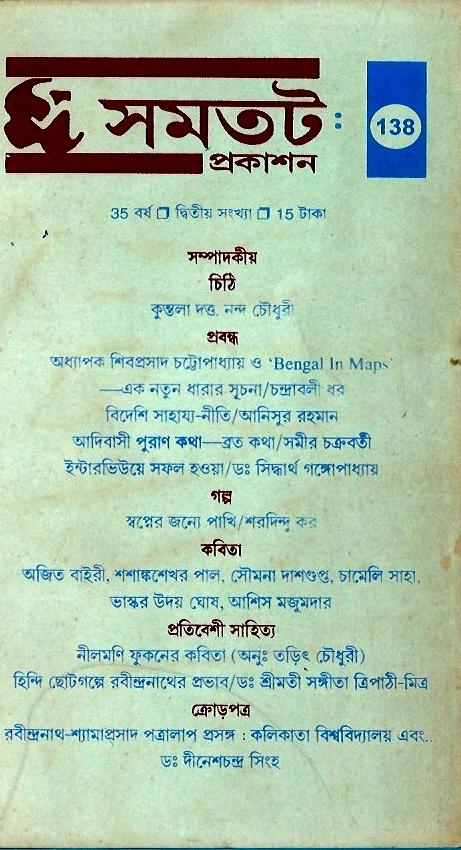 সমতট :
প্রকাশন
138
35 বর্ষ ❐ দ্বিতীয় সংখ্যা ❐ 15 টাকা
সম্পাদকীয়
চিঠি
কুন্তলা দত্ত, নন্দ চৌধুরী
প্রবন্ধ
অধ্যাপক শিবপ্রসাদ চট্টোপাধ্যায় ও ‘Bengal In Maps’
—এক নতুন ধারার সূচনা/চন্দ্রাবলী ধর
বিদেশি সাহায্য-নীতি/আনিসুর রহমান
আদিবাসী পুরাণ কথা—ব্রত কথা/সমীর চক্রবর্তী
ইন্টারভিউয়ে সফল হওয়া/ডঃ সিদ্ধার্থ গঙ্গোপাধ্যায়
গল্প
স্বপ্নের জন্যে পাখি/শরদিন্দু কর
কবিতা
অজিত বাইরী, শশাঙ্কশেখর পাল, সৌমনা দাশগুপ্ত, চামেলি সাহা,
ভাস্কর উদয় ঘোষ, আশিস মজুমদার
প্রতিবেশী সাহিত্য
নীলমণি ফুকনের কবিতা (অনুঃ তড়িৎ চৌধুরী)
হিন্দি ছোটগল্পে রবীন্দ্রনাথের প্রভাব/ডঃ শ্রীমতী সঙ্গীতা ত্রিপাঠী-মিত্র
ক্রোড়পত্র
রবীন্দ্রনাথ-শ্যামাপ্রসাদ পত্রালাপ প্রসঙ্গ : কলিকাতা বিশ্ববিদ্যালয় এবং...
ডঃ দীনেশচন্দ্র সিংহ